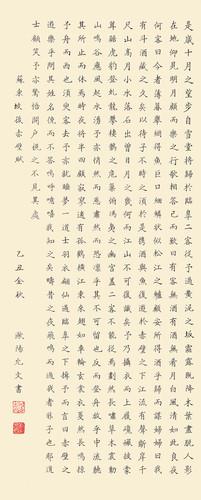 是歲十月之望步自雪堂將歸於臨皋二客從予過黃泥之坂霜露既降木葉盡脫人影
在地仰見明月顧而樂之行歌相答已而歎曰有客無酒有酒無肴月白風清如此良夜
何客曰今者薄暮舉網得魚巨口細鱗狀似松江之鱸顧安所得酒乎歸而謀諸婦婦曰我
有斗酒藏之久矣以待子不時之須於是攜酒與魚復遊於赤壁之下江流有聲斷岸千
尺山高月小水落石出曾日月之幾何而江山不可復識矣予乃攝衣而上履巉巖披蒙
茸踞虎豹登虯龍攀棲鶻之危巢俯馮夷之幽宮蓋二客不能從焉劃然長嘯草木震動
山鳴谷應風起水涌予亦悄然而悲肅然而恐凜乎其不可留也反而登舟放乎中流聽
其所止而休焉時夜將半四顧寂寥適有孤鶴橫江東來翅如車輪玄裳縞衣戛然長鳴掠
予舟而西也須臾客去予亦就睡夢一道士羽衣翩仙過臨皋之下揖予而言曰赤壁之
遊樂乎問其姓名俛而不答嗚呼噫嘻我知之矣疇昔之夜飛鳴而過我者非子也耶道
士顧笑予亦驚悟開戶視之不見其處
蘇東坡後赤壁賦
乙丑金秋
歐陽九文書